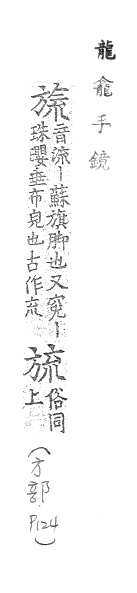 龍龕手鏡
旒音流丨蘇旗脚也又冕丨
珠瓔垂布皃也古作㐬
旒俗同
上
(方部.P124)